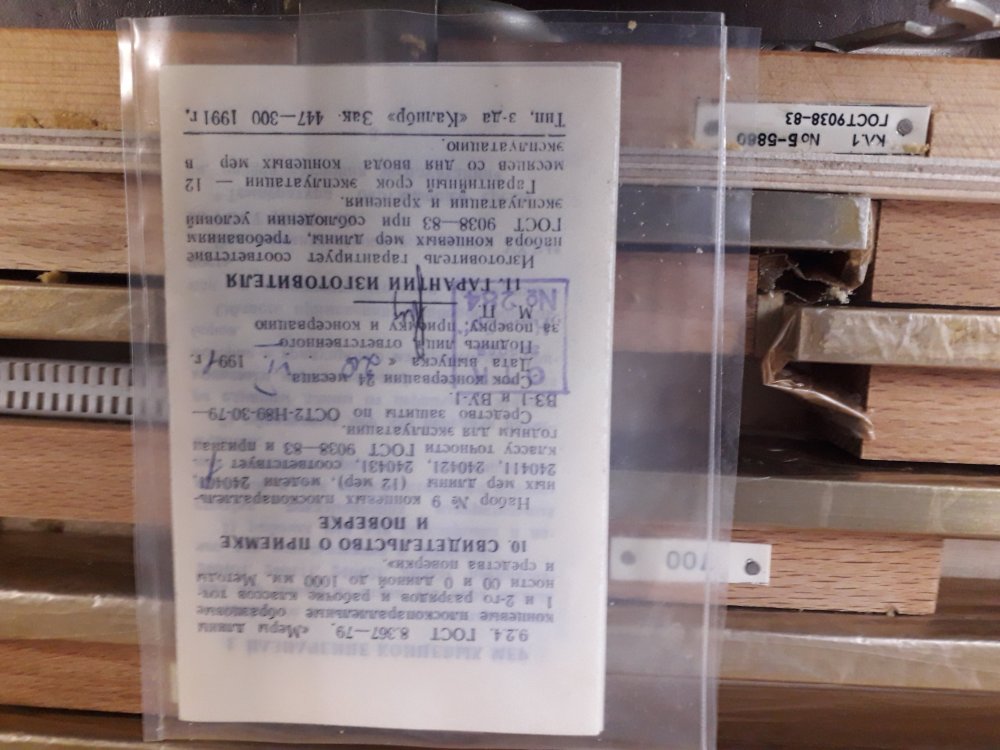 9.2.4. ГОСТ 8.367—79. «Меры длины
концевые плоскопараллельные образцовые
1 и 2-го разрядов и рабочие классов точ-
ности 00 и 0 длиной до 1000 мм. Методы
и средства поверки».
10. СВИДЕТЕЛЬСТВО О ПРИЕМКЕ
И ПОВЕРКЕ
Набор № 9 концевых плоскопараллель-
ных мер длины (12 мер), модели 240401,
240411, 240421, 240431, соответствует
классу точности ГОСТ 9038—83 и признан
годным для эксплуатации.
Средство защиты по ОСТ2-Н89-30-79—
ВЗ-1 и ВУ-1.
Срок консервации 24 месяца.
Дата выпуска « 20 VI 1991 г.
Подпись лица, ответственного
за поверку, приемку и консервацию
М. П.
№ 284
11. ГАРАНТИИ ИЗГОТОВИТЕЛЯ
Изготовитель гарантирует соответствие
набора концевых мер длины, требованиям
ГОСТ 9038—83 при соблюдении условий
эксплуатации и хранения.
Гарантийный срок эксплуатации — 12
месяцев со дня ввода концевых мер в
эксплуатацию.
Тип. з-да «Калибр» Зак. 447—300 1991 г.
КЛ.1 № Б-5860
ГОСТ 9038-83
700